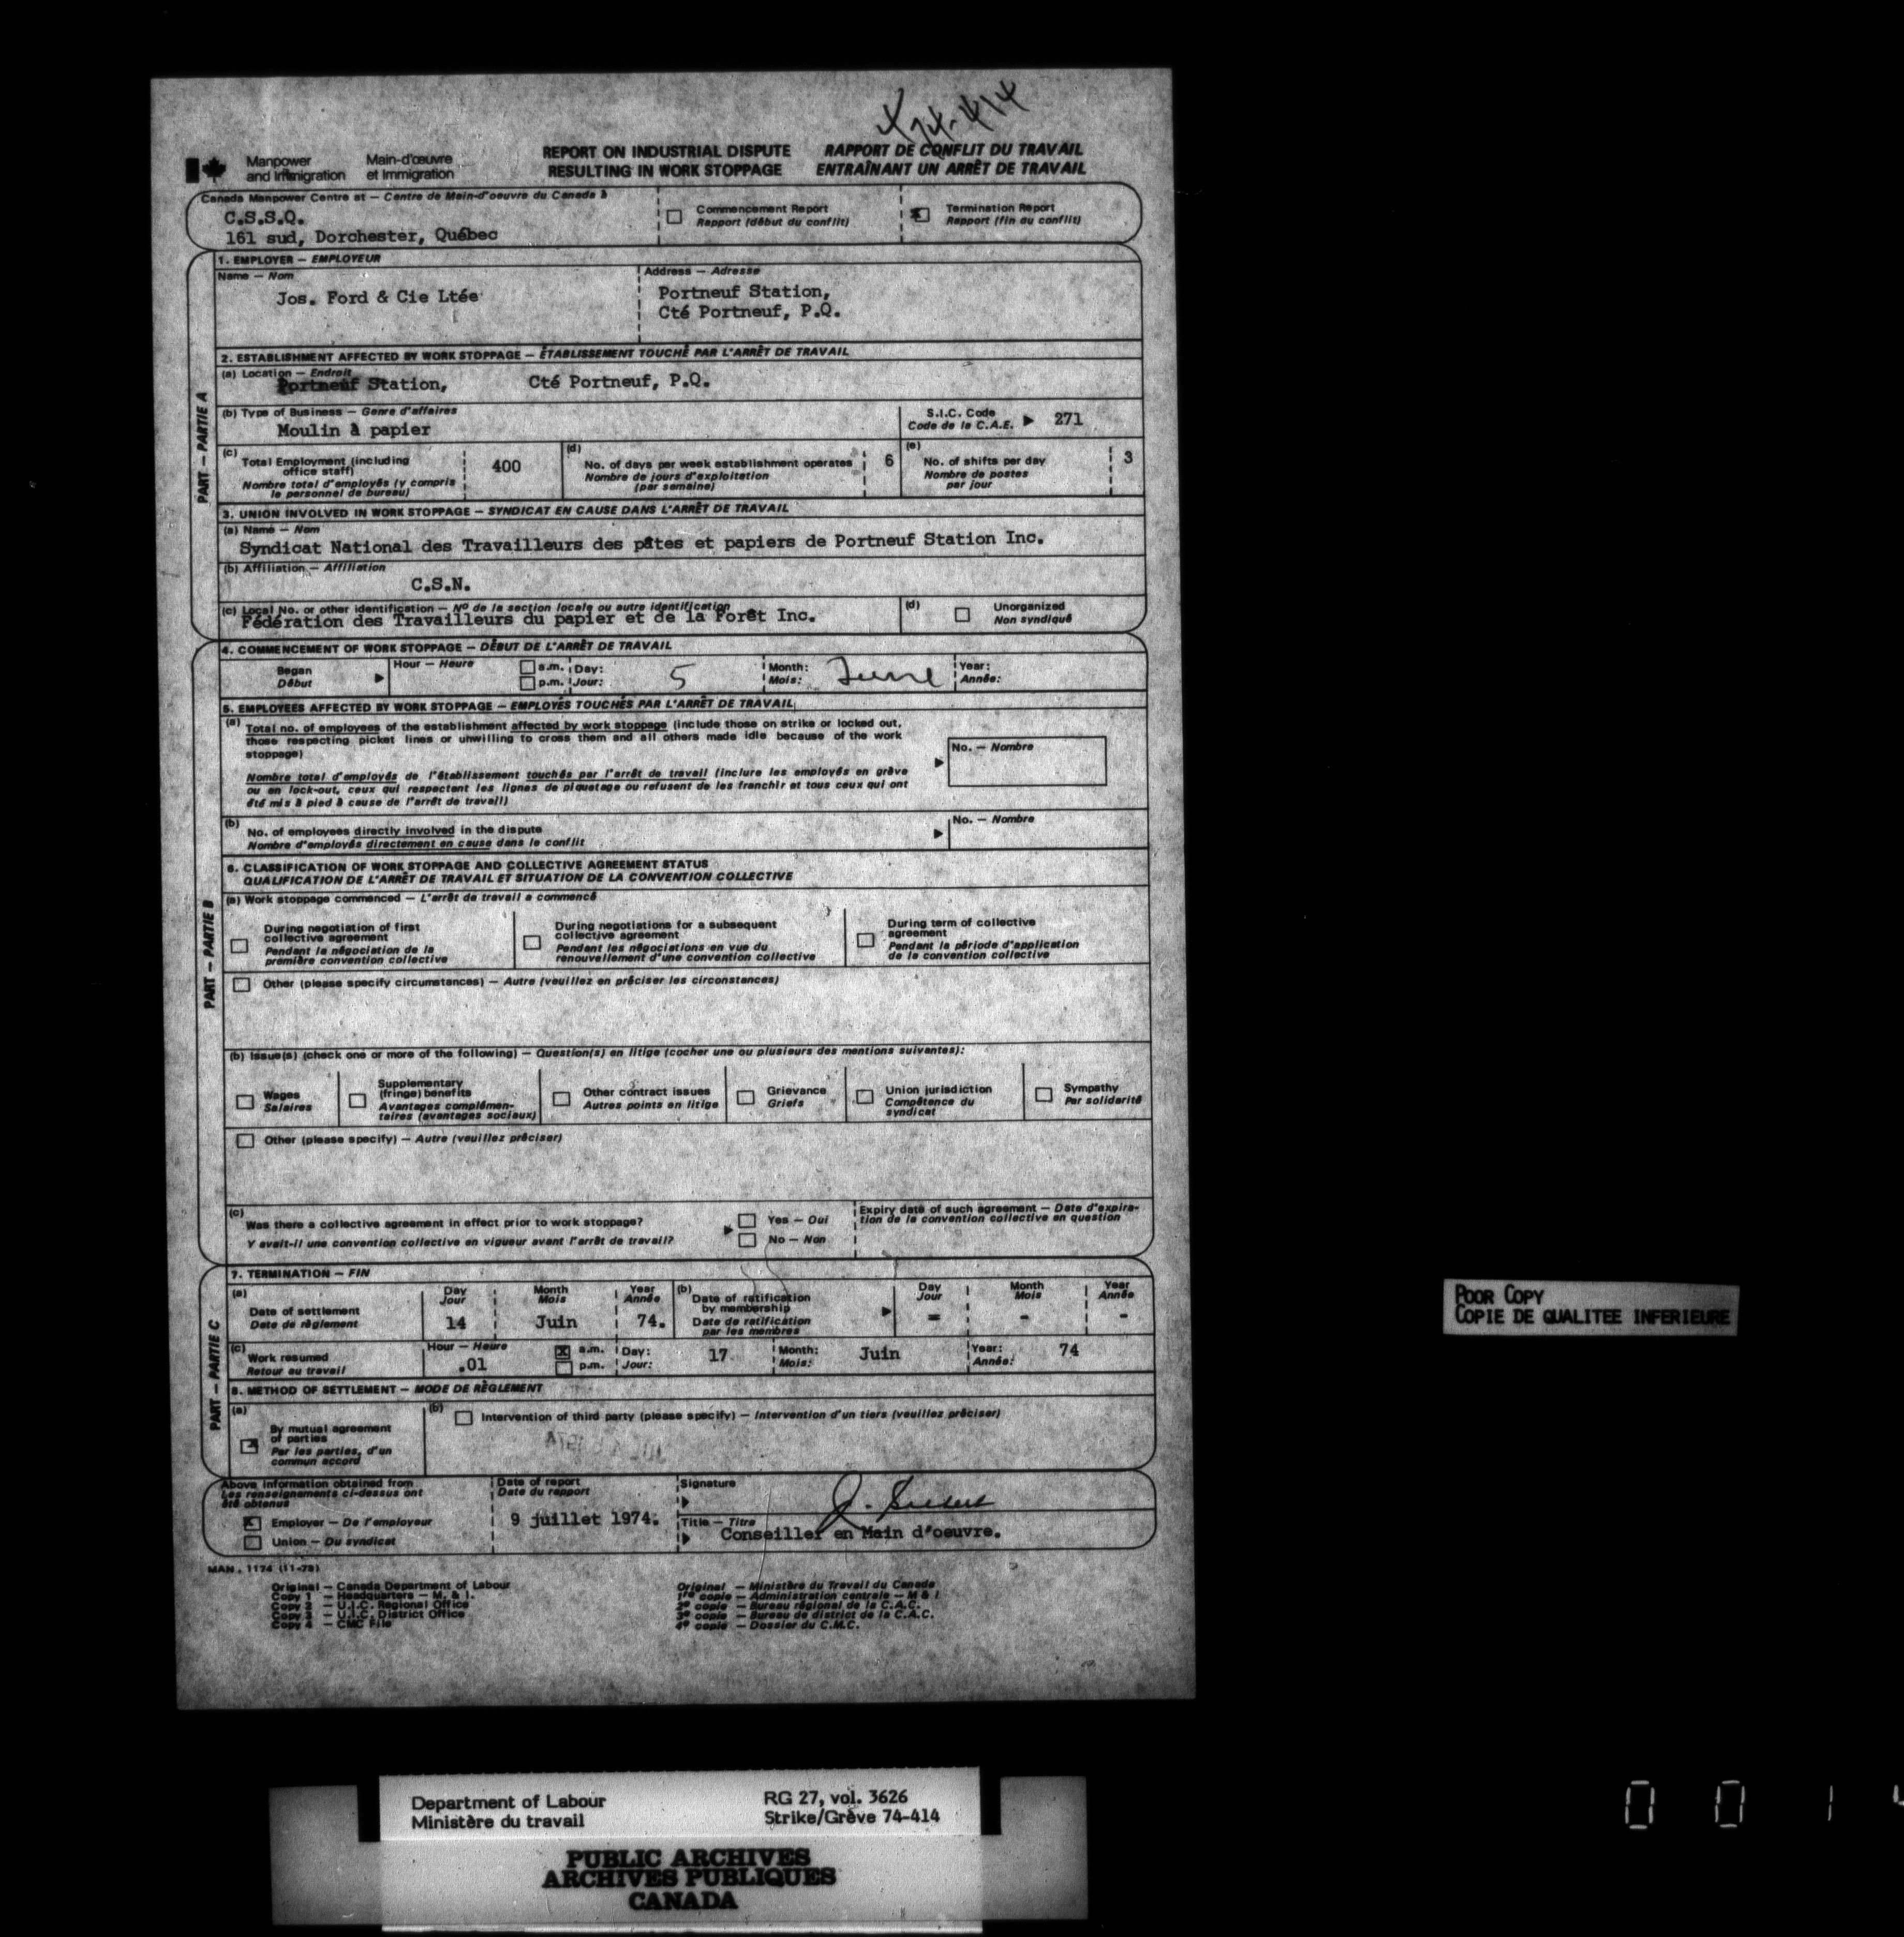 74-414
Manpower and Immigration
Main-d'œuvre et Immigration
REPORT ON INDUSTRIAL DISPUTE
RESULTING IN WORK STOPPAGE
RAPPORT DE CONFLIT DU TRAVAIL
ENTRAÎNANT UN ARRÊT DE TRAVAIL
Canada Manpower Centre at — Centre de Main-d'oeuvre du Canada à
C.S.S.Q.
161 sud, Dorchester, Québec
Commencement Report
Rapport (début du conflit)
Termination Report
Rapport (fin du conflit)
PART — PARTIE A
1. EMPLOYER — EMPLOYEUR
Name — Nom
Jos. Ford & Cie Ltée
Address — Adresse
Portneuf Station,
Cté Portneuf, P.Q.
2. ESTABLISHMENT AFFECTED BY WORK STOPPAGE — ÉTABLISSEMENT TOUCHÉ PAR L'ARRÊT DE TRAVAIL
(a) Location — Endroit
Portneuf Station, Cté Portneuf, P.Q.
(b) Type of Business — Genre d'affaires
Moulin à papier
S.I.C. Code
Code de la C.A.E. 271
(c) Total Employment (including
office staff)
Nombre total d'employés (y compris
le personnel de bureau)
400
(d) No. of days per week establishment operates
Nombre de jours d'exploitation
(par semaine)
6
(e) No. of shifts per day
Nombre de postes
par jour
3
3. UNION INVOLVED IN WORK STOPPAGE — SYNDICAT EN CAUSE DANS L'ARRÊT DE TRAVAIL
(a) Name — Nom
Syndicat National des Travailleurs des pâtes et papiers de Portneuf Station Inc.
(b) Affiliation — Affiliation
C.S.N.
(c) Local No. or other identification — Nº de la section locale ou autre identification
Fédération des Travailleurs du papier et de la Forêt Inc.
(d) Unorganized
Non syndiqué
PART — PARTIE B
4. COMMENCEMENT OF WORK STOPPAGE — DÉBUT DE L'ARRÊT DE TRAVAIL
Began
Début
Hour — Heure
a.m.
p.m.
Day:
Jour: 5
Month:
Mois: June
Year:
Année:
5. EMPLOYEES AFFECTED BY WORK STOPPAGE — EMPLOYÉS TOUCHÉS PAR L'ARRÊT DE TRAVAIL
(a) Total no. of employees of the establishment affected by work stoppage (include those on strike or locked out,
those respecting picket lines or unwilling to cross them and all others made idle because of the work
stoppage)
Nombre total d'employés de l'établissement touchés par l'arrêt de travail (inclure les employés en grève
ou en lock-out, ceux qui respectent les lignes de piquetage ou refusent de les franchir et tous ceux qui ont
été mis à pied à cause de l'arrêt de travail)
No. — Nombre
(b) No. of employees directly involved in the dispute
Nombre d'employés directement en cause dans le conflit
No. — Nombre
6. CLASSIFICATION OF WORK STOPPAGE AND COLLECTIVE AGREEMENT STATUS
QUALIFICATION DE L'ARRÊT DE TRAVAIL ET SITUATION DE LA CONVENTION COLLECTIVE
(a) Work stoppage commenced — L'arrêt de travail a commencé
During negotiation of first
collective agreement
Pendant la négociation de la
première convention collective
During negotiations for a subsequent
collective agreement
Pendant les négociations en vue du
renouvellement d'une convention collective
During term of collective
agreement
Pendant la période d'application
de la convention collective
Other (please specify circumstances) — Autre (veuillez en préciser les circonstances)
(b) Issue(s) (check one or more of the following) — Question(s) en litige (cocher une ou plusieurs des mentions suivantes):
Wages
Salaires
Supplementary
(fringe) benefits
Avantages complémen-
taires (avantages sociaux)
Other contract issues
Autres points en litige
Grievance
Griefs
Union jurisdiction
Compétence du
syndicat
Sympathy
Par solidarité
Other (please specify) — Autre (veuillez préciser)
(c) Was there a collective agreement in effect prior to work stoppage?
Y avait-il une convention collective en vigueur avant l'arrêt de travail?
Yes — Oui
No — Non
Expiry date of such agreement — Date d'expira-
tion de la convention collective en question
PART — PARTIE C
7. TERMINATION — FIN
(a) Date of settlement
Date de règlement
Day
Jour
14
Month
Mois
Juin
Year
Année
74.
(b) Date of ratification
by membership
Date de ratification
par les membres
Day
Jour
-
Month
Mois
-
Year
Année
-
(c) Work resumed
Retour au travail
Hour — Heure
.01
X a.m.
p.m.
Day:
Jour: 17
Month:
Mois: Juin
Year:
Année: 74
8. METHOD OF SETTLEMENT — MODE DE RÈGLEMENT
(a) By mutual agreement
of parties
Par les parties, d'un
commun accord
(b) Intervention of third party (please specify) — Intervention d'un tiers (veuillez préciser)
Above information obtained from
Les renseignements ci-dessus ont
été obtenus
X Employer — De l'employeur
Union — Du syndicat
Date of report
Date du rapport
9 juillet 1974.
Signature
Title — Titre
Conseiller en Main d'oeuvre.
MAN. 1174 (11-73)
Original — Canada Department of Labour
Copy 1 — Headquarters — M. & I.
Copy 2 — U.I.C. Regional Office
Copy 3 — U.I.C. District Office
Copy 4 — CMC File
Original — Ministère du Travail du Canada
1re copie — Administration centrale — M & I
2e copie — Bureau régional de la C.A.C.
3e copie — Bureau de district de la C.A.C.
4e copie — Dossier du C.M.C.
POOR COPY
COPIE DE QUALITEE INFERIEURE
Department of Labour
Ministère du travail
RG 27, vol. 3626
Strike/Grève 74-414
PUBLIC ARCHIVES
ARCHIVES PUBLIQUES
CANADA
0 0 1